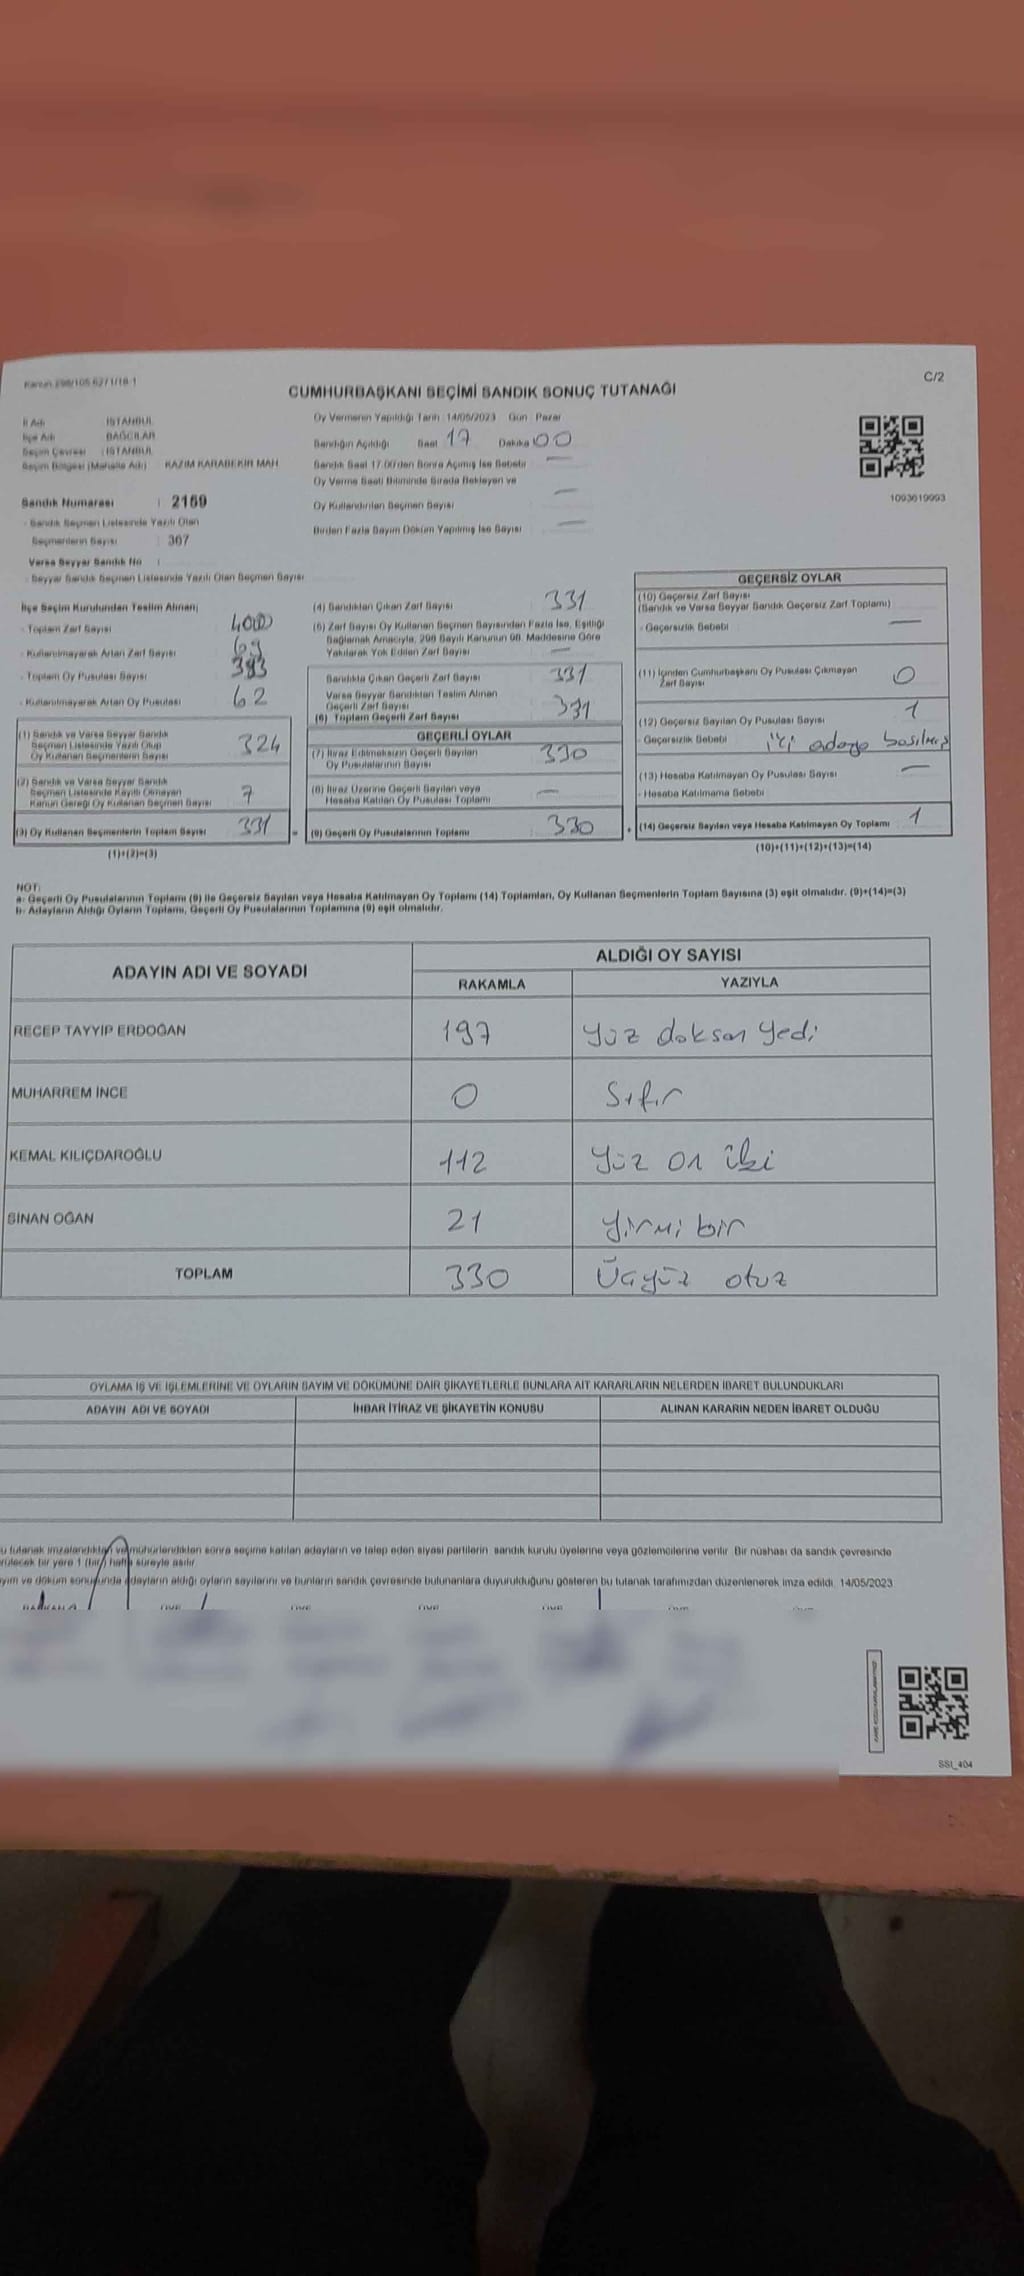 Kanun 298/105 6271/18-1
C/2
CUMHURBAŞKANI SEÇİMİ SANDIK SONUÇ TUTANAĞI
İl Adı : İSTANBUL
İlçe Adı : BAĞCILAR
Seçim Çevresi : İSTANBUL
Seçim Bölgesi (Mahalle Adı) KAZIM KARABEKİR MAH
Sandık Numarası : 2159
- Sandık Seçmen Listesinde Yazılı Olan
Seçmenlerin Sayısı : 367
Varsa Seyyar Sandık No :
- Seyyar Sandık Seçmen Listesinde Yazılı Olan Seçmen Sayısı
Oy Vermenin Yapıldığı Tarih : 14/05/2023 Gün : Pazar
Sandığın Açıldığı Saat 17 Dakika 00
Sandık Saat 17.00'den Sonra Açımış İse Sebebi —
Oy Verme Saati Bitiminde Sırada Bekleyen ve
Oy Kullandırılan Seçmen Sayısı —
Birden Fazla Sayım Döküm Yapılmış İse Sayısı —
1093619993
İlçe Seçim Kurulundan Teslim Alınan;
- Toplam Zarf Sayısı 400
- Kullanılmayarak Artan Zarf Sayısı 69
- Toplam Oy Pusulası Sayısı 393
- Kullanılmayarak Artan Oy Pusulası 62
(1) Sandık ve Varsa Seyyar Sandık
Seçmen Listesinde Yazılı Olup
Oy Kullanan Seçmenlerin Sayısı 324
(2) Sandık ve Varsa Seyyar Sandık
Seçmen Listesinde Kayıtlı Olmayan
Kanun Gereği Oy Kullanan Seçmen Sayısı 7
(3) Oy Kullanan Seçmenlerin Toplam Sayısı 331
(1)+(2)=(3)
(4) Sandıktan Çıkan Zarf Sayısı 331
(5) Zarf Sayısı Oy Kullanan Seçmen Sayısından Fazla İse, Eşitliği
Sağlamak Amacıyla, 298 Sayılı Kanunun 98. Maddesine Göre
Yakılarak Yok Edilen Zarf Sayısı —
Sandıkta Çıkan Geçerli Zarf Sayısı 331
Varsa Seyyar Sandıktan Teslim Alınan
Geçerli Zarf Sayısı
(6) Toplam Geçerli Zarf Sayısı 331
GEÇERLİ OYLAR
(7) İtiraz Edilmeksizin Geçerli Sayılan
Oy Pusulalarının Sayısı 330
(8) İtiraz Üzerine Geçerli Sayılan veya
Hesaba Katılan Oy Pusulası Toplamı —
= (9) Geçerli Oy Pusulalarının Toplamı 330
GEÇERSİZ OYLAR
(10) Geçersiz Zarf Sayısı
(Sandık ve Varsa Seyyar Sandık Geçersiz Zarf Toplamı)
- Geçersizlik Sebebi —
(11) İçinden Cumhurbaşkanı Oy Pusulası Çıkmayan
Zarf Sayısı 0
(12) Geçersiz Sayılan Oy Pusulası Sayısı 1
- Geçersizlik Sebebi iki adaya basılmış
(13) Hesaba Katılmayan Oy Pusulası Sayısı —
- Hesaba Katılmama Sebebi
+ (14) Geçersiz Sayılan veya Hesaba Katılmayan Oy Toplamı 1
(10)+(11)+(12)+(13)=(14)
NOT:
a- Geçerli Oy Pusulalarının Toplamı (9) ile Geçersiz Sayılan veya Hesaba Katılmayan Oy Toplamı (14) Toplamları, Oy Kullanan Seçmenlerin Toplam Sayısına (3) eşit olmalıdır. (9)+(14)=(3)
b- Adayların Aldığı Oyların Toplamı, Geçerli Oy Pusulalarının Toplamına (9) eşit olmalıdır.
ADAYIN ADI VE SOYADI ALDIĞI OY SAYISI
RAKAMLA YAZIYLA
RECEP TAYYIP ERDOĞAN 197 Yüz doksan yedi
MUHARREM İNCE 0 Sıfır
KEMAL KILIÇDAROĞLU 112 Yüz on iki
SİNAN OĞAN 21 Yirmi bir
TOPLAM 330 Üçyüz otuz
OYLAMA İŞ VE İŞLEMLERİNE VE OYLARIN SAYIM VE DÖKÜMÜNE DAİR ŞİKAYETLERLE BUNLARA AİT KARARLARIN NELERDEN İBARET BULUNDUKLARI
ADAYIN ADI VE SOYADI İHBAR İTİRAZ VE ŞİKAYETİN KONUSU ALINAN KARARIN NEDEN İBARET OLDUĞU
u tutanak imzalandıktan ve mühürlendikten sonra seçime katılan adayların ve talep eden siyasi partilerin sandık kurulu üyelerine veya gözlemcilerine verilir. Bir nüshası da sandık çevresinde
rülecek bir yere 1 (bir) hafta süreyle asılır.
yım ve döküm sonucunda adayların aldığı oyların sayılarını ve bunların sandık çevresinde bulunanlara duyurulduğunu gösteren bu tutanak tarafımızdan düzenlenerek imza edildi. 14/05/2023
SSI_404